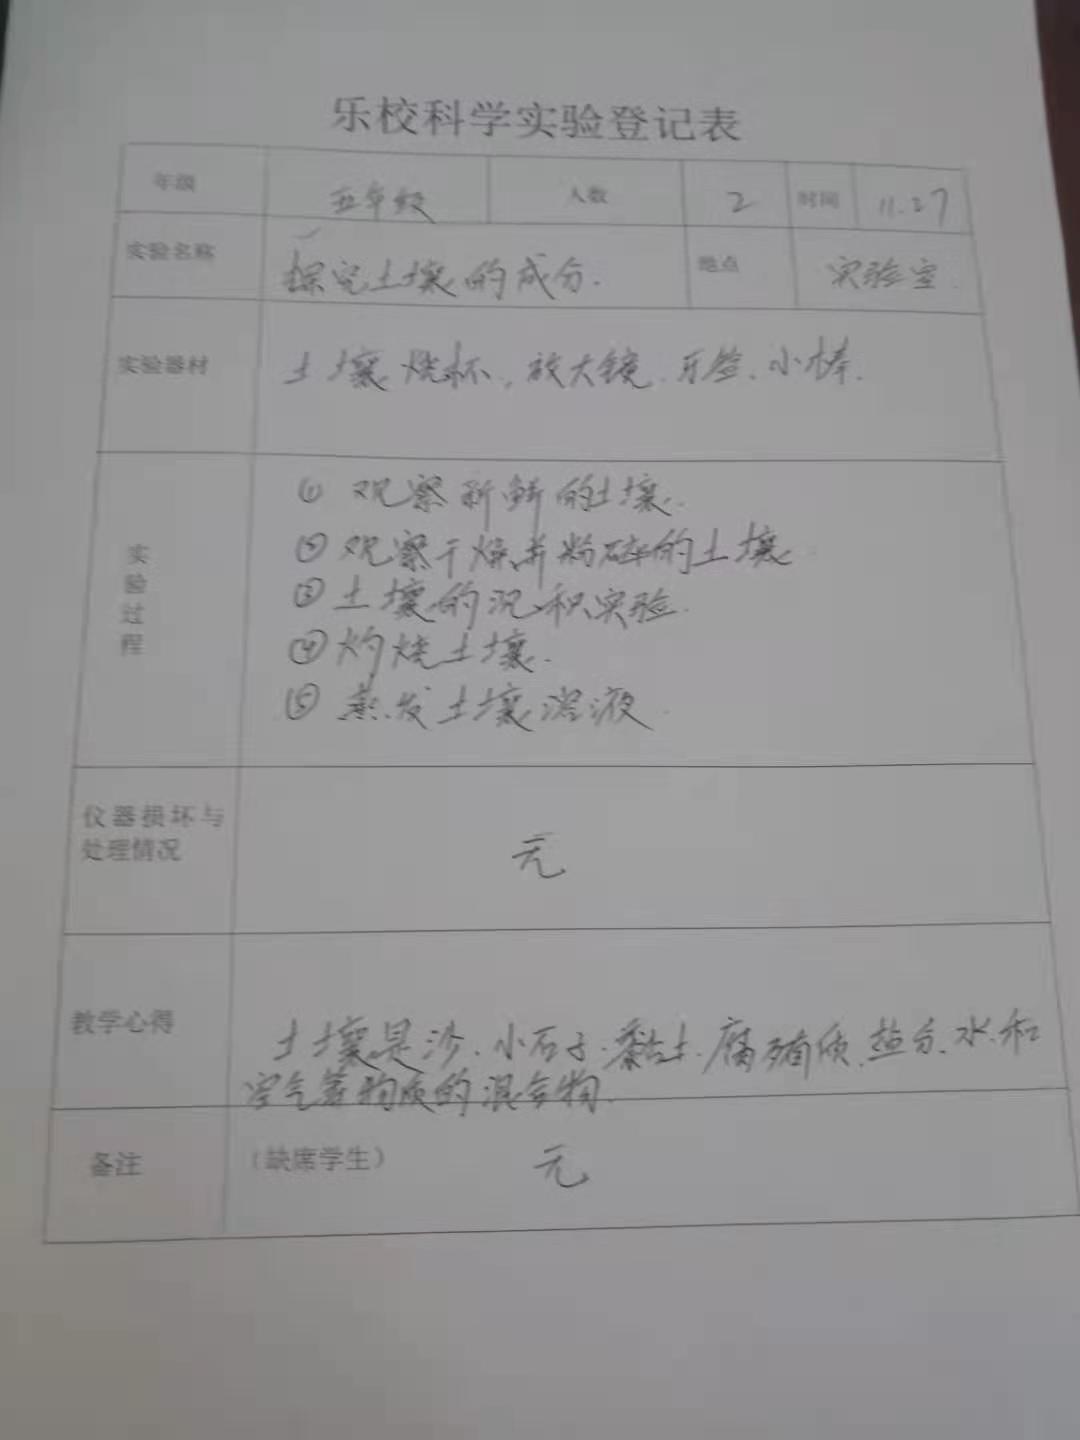 乐校科学实验登记表
年级 五年级 人数 2 时间 11.27
实验名称 探究土壤的成分. 地点 实验室.
实验器材 土壤 烧杯, 放大镜. 牙签. 小棒.
实验过程
① 观察新鲜的土壤.
② 观察干燥并粉碎的土壤.
③ 土壤的沉积实验.
④ 灼烧土壤.
⑤ 蒸发土壤溶液.
仪器损坏与
处理情况 无
教学心得
土壤是沙、小石子、黏土、腐殖质、盐分、水、和
空气等物质的混合物.
备注 (缺席学生) 无